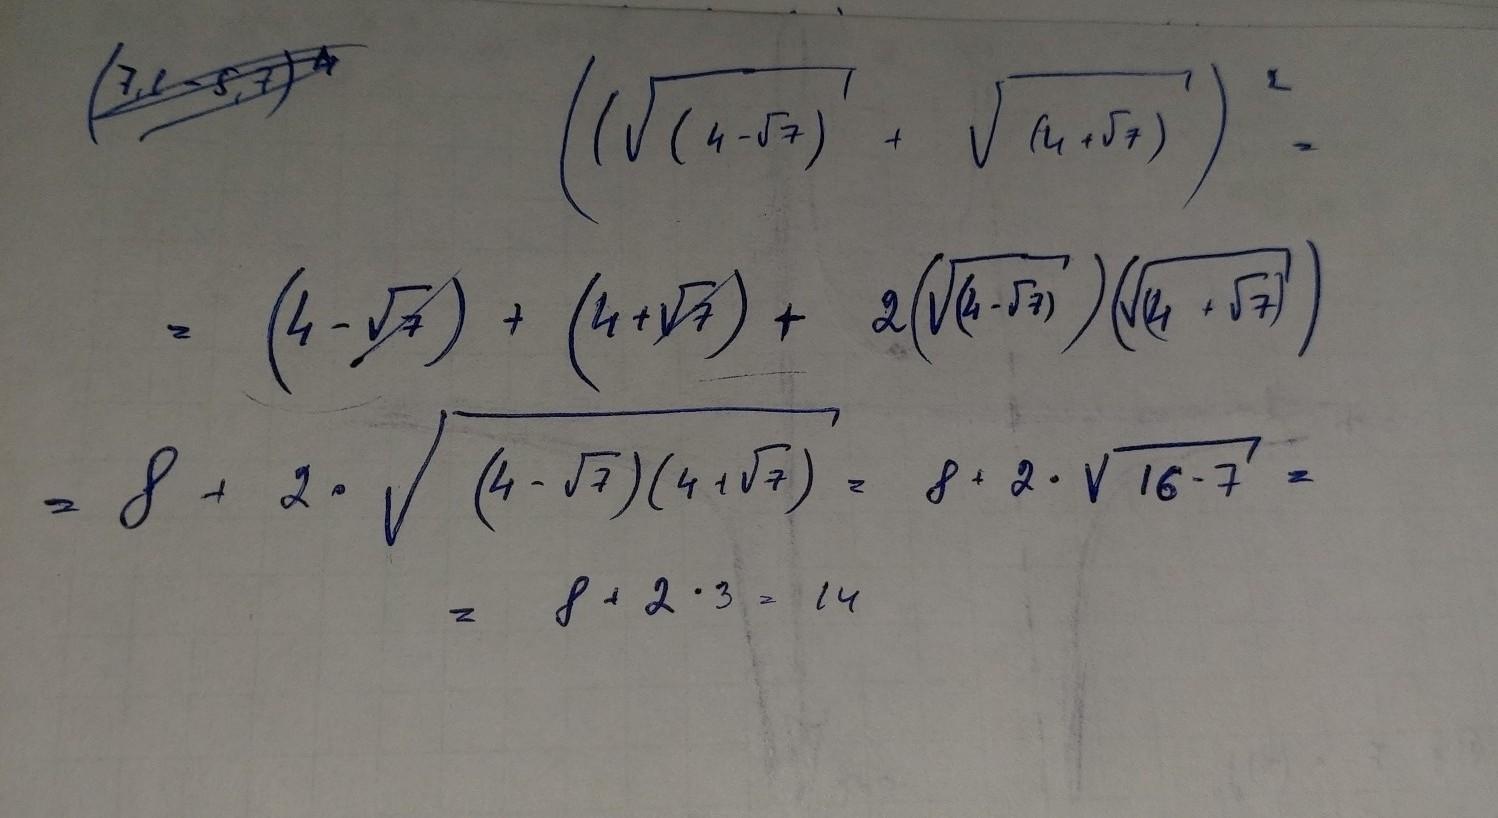 ((√(4-√7) + √(4+√7))² =
= (4-√7) + (4+√7) + 2(√(4-√7))(√(4+√7))
= 8 + 2·√(4-√7)(4+√7) = 8 + 2·√16-7 =
= 8 + 2·3 = 14